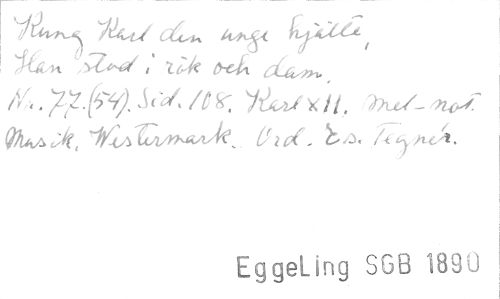 Kung Karl den unge hjälte,
Han stod i rök och dam.
Nr. 77.(54). Sid. 108. Karl XII. Mel-not.
Musik. Westermark. Ord. Es. Tegnér.
EggeLing SGB 1890